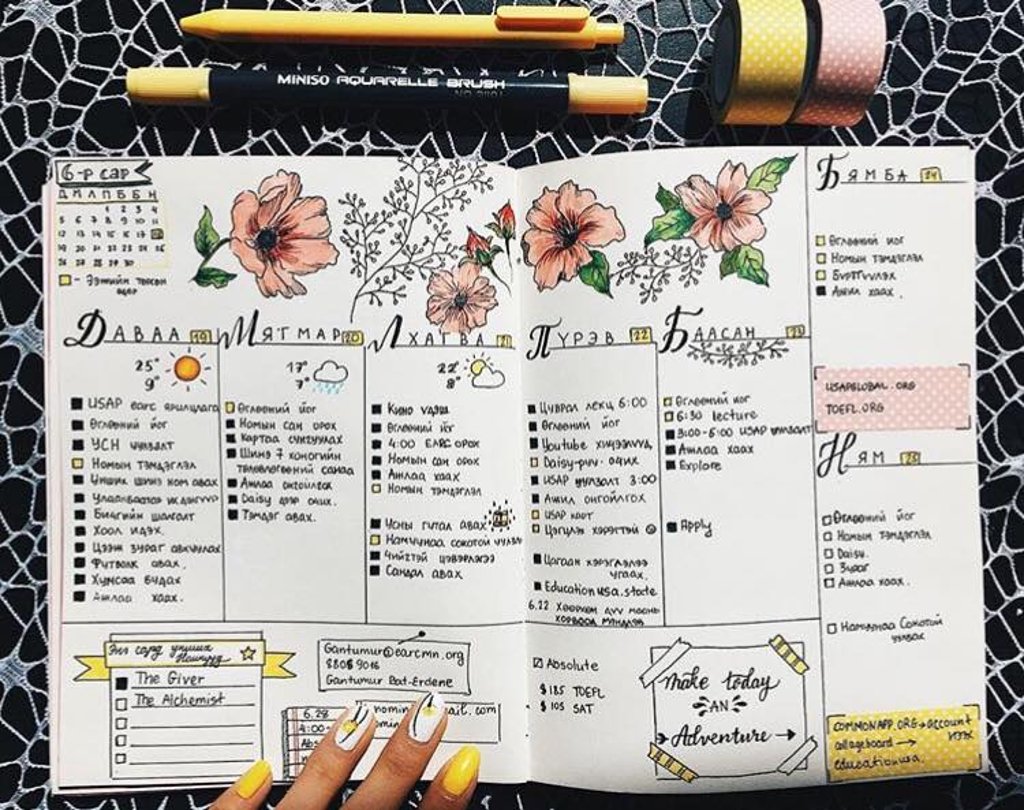 MINISO AQUARELLE BRUSH
6-р сар
Д М Л П Б Б Н
1 2 3 4
5 6 7 8 9 10 11
12 13 14 15 16 17 18
19 20 21 22 23 24 25
26 27 28 29 30
ДАВАА 19
25°
9°
USAP earc ярилцлага
Өглөөний йог
УСН уулзалт
Номын тэмдэглэл
Унших шинэ ном авах
Бичгийн шалгалт
Хоол идэх.
Цээж зураг авхуулах
Футболк авах.
Хумсаа будах
Ажлаа хаах.
МЯГМАР 20
17°
7°
Өглөөний йог
Номын сан орох
Картаа сунгуулах
Шинэ 7 хоногийн
төлөвлөгөөний санаа
Ажлаа онгойлгох
Daisy дээр очих.
Тэмдэг авах.
ЛХАГВА 21
22°
8°
Кино үдэш
Өглөөний йог
4:00 EARC орох
Номын сан орох
Ажлаа хаах
Номын тэмдэглэл
Усны гутал авах
Намуунаа сокотой уулзах
Чийгтэй цэвэрлэгээ
Сандал авах
ПҮРЭВ 22
Цуврал лекц 6:00
Өглөөний йог
Youtube хичээлүүд
Daisy-рүү очих
USAP уулзалт 3:00
Ажил онгойлгох
USAP карт
Цэгцлэх хэрэгтэй
Цагаан хэрэглэлээ
угаах.
Education usa.state
6.22
БААСАН 23
Өглөөний йог
6:30 lecture
3:00-6:00 USAP уулзалт
Ажлаа хаах
Explore
Apply
БЯМБА 24
Өглөөний йог
Номын тэмдэглэл
Бүртгүүлэх
Ажил хаах.
USAPGLOBAL.ORG
TOEFL.ORG
НЯМ 25
Өглөөний йог
Номын тэмдэглэл
Daisy.
Зураг
Ажлаа хаах.
Намуунаа Сокотой
уулзах
Энэ сард унших
Номнууд
The Giver
The Alchemist
Gantumur@earcmn.org
8808 9016
Gantumur Bat-Erdene
6.28
4:00-
Abs
nomin
ail.com
nomin
Absolute
$185 TOEFL
$105 SAT
Make today
AN
Adventure
COMMONAPP.ORG→account
нээх
collegeboard →
educationusa.